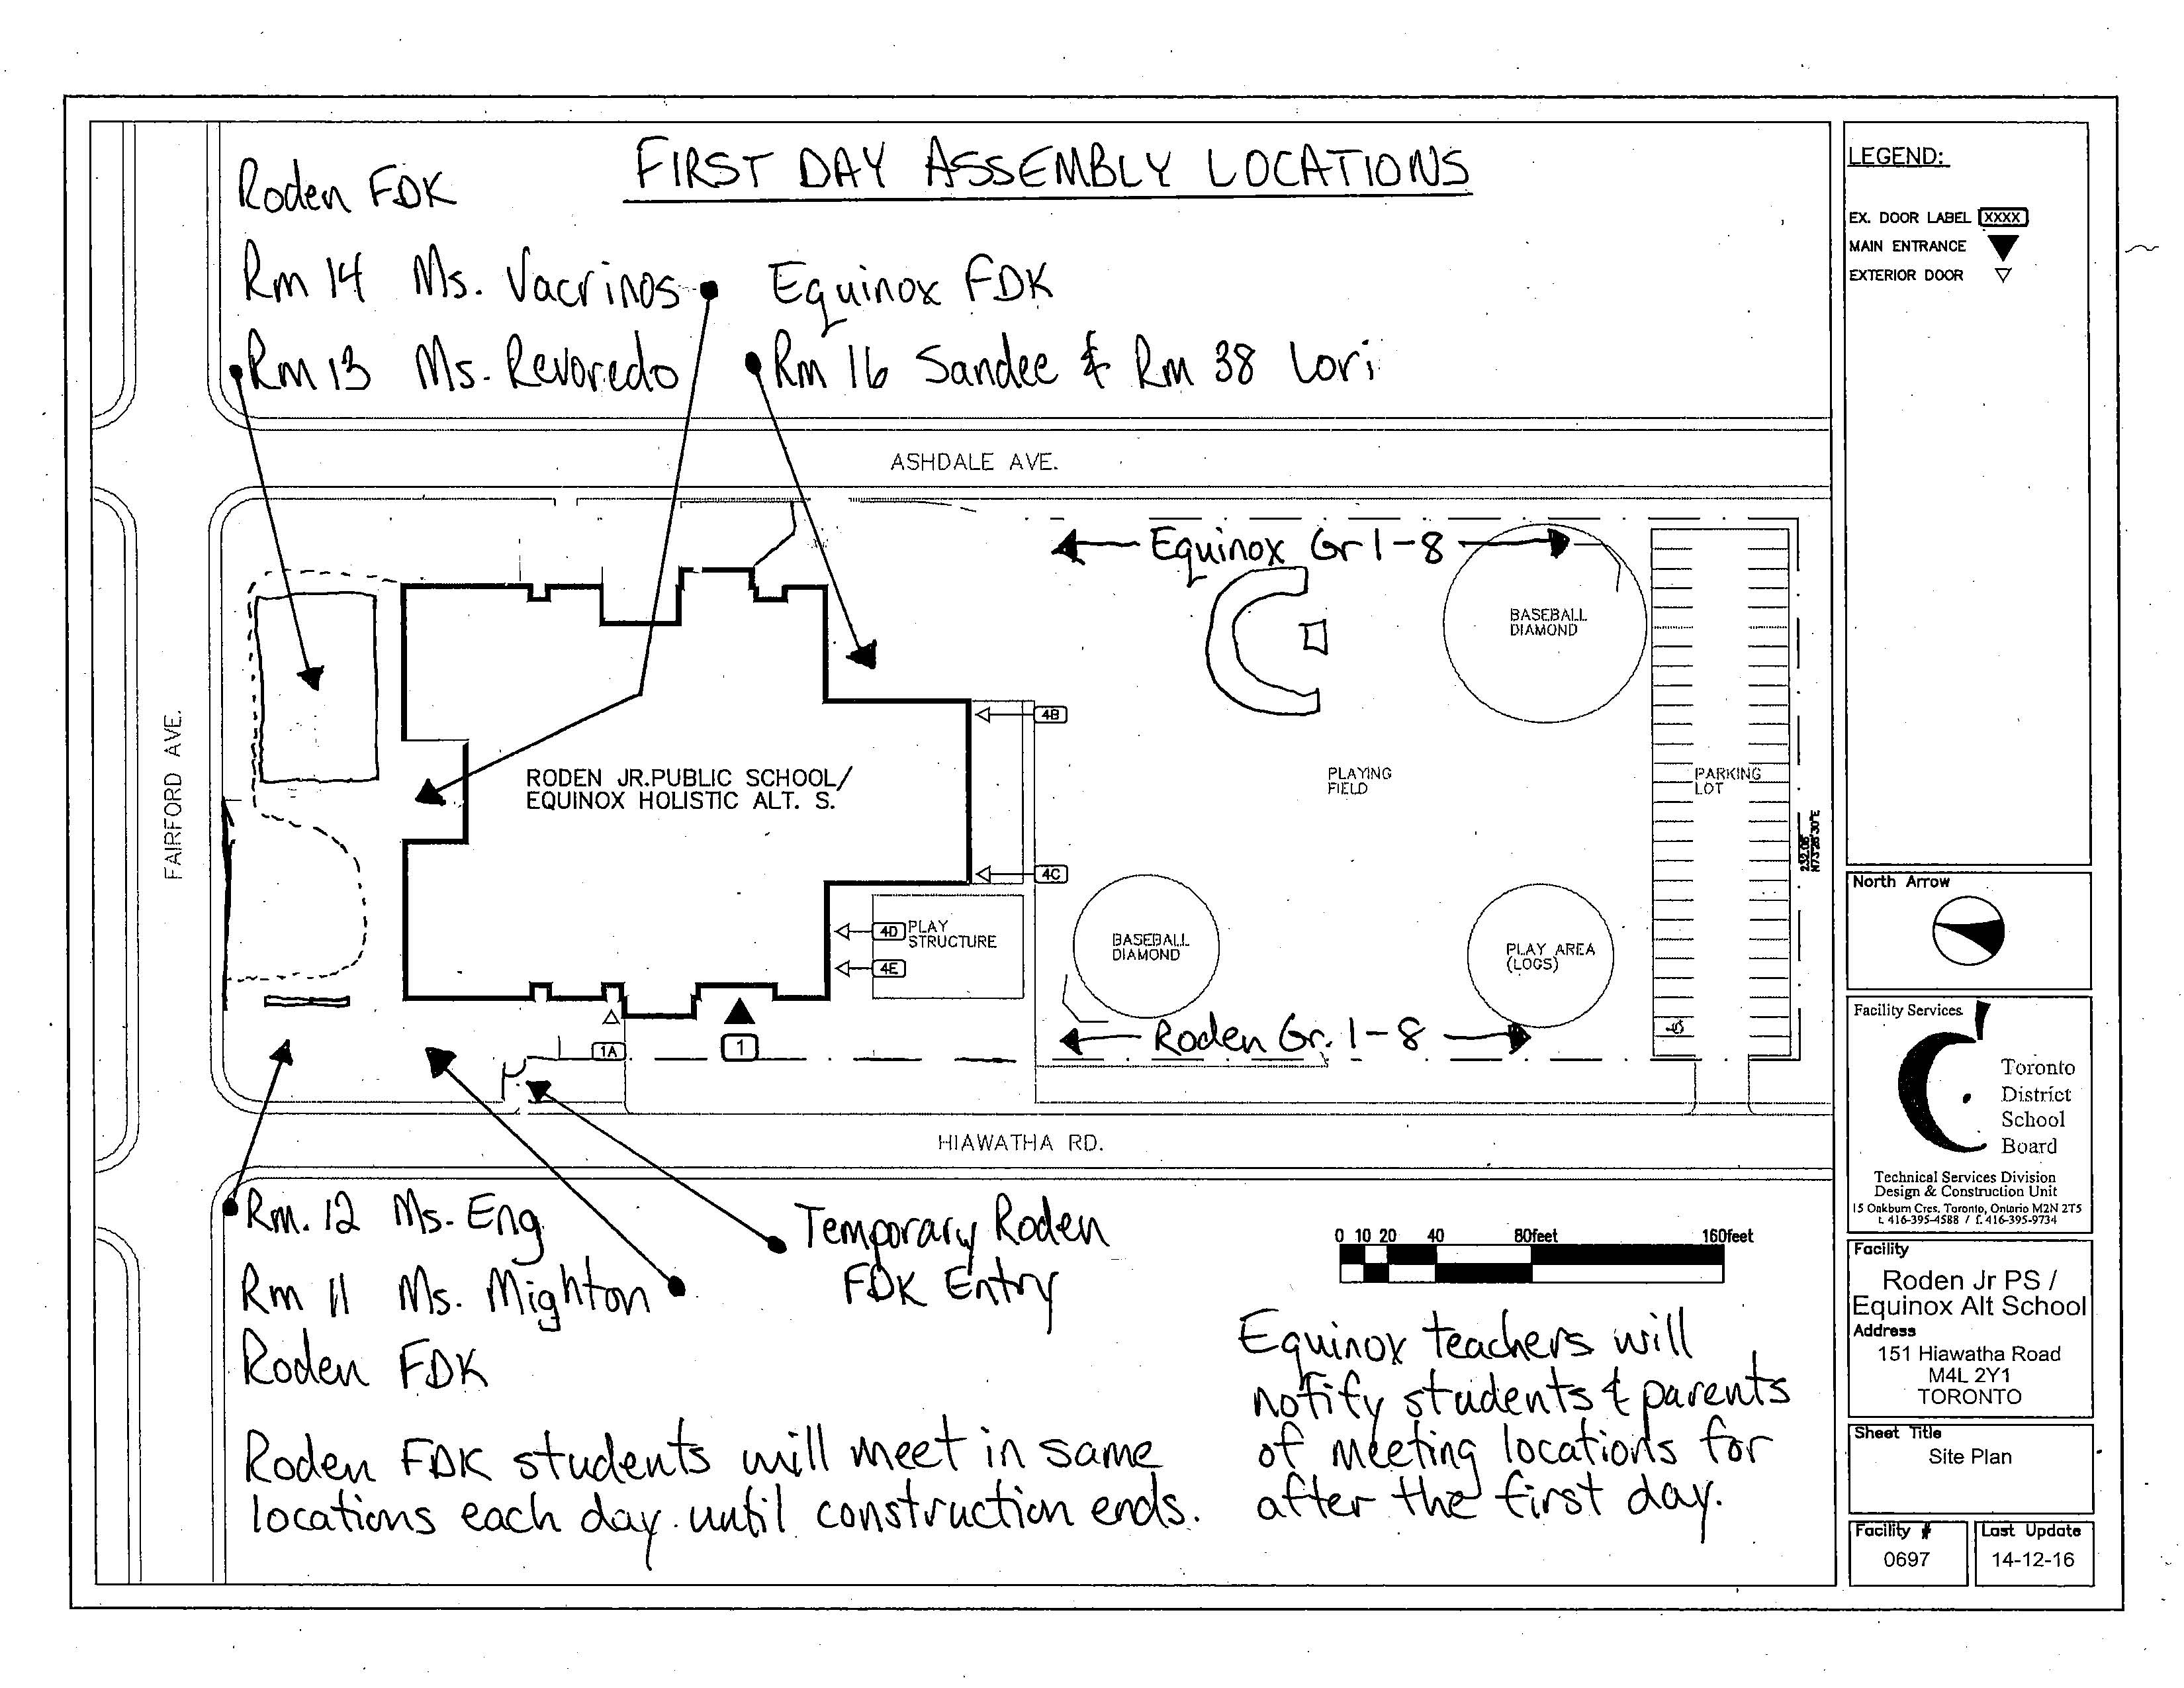 FIRST DAY ASSEMBLY LOCATIONS
Roden FDK
Rm 14 Ms. Vacrinos
Rm 13 Ms. Revoredo
Equinox FDK
Rm 16 Sandee & Rm 38 Lori
ASHDALE AVE.
FAIRFORD AVE.
Equinox Gr 1-8
BASEBALL
DIAMOND
4B
RODEN JR.PUBLIC SCHOOL/
EQUINOX HOLISTIC ALT. S.
PLAYING
FIELD
PARKING
LOT
232.05
N73°26'30"E
4C
4D
PLAY
STRUCTURE
4E
BASEBALL
DIAMOND
PLAY AREA
(LOGS)
1A
1
Roden Gr. 1-8
HIAWATHA RD.
Rm. 12 Ms. Eng
Rm 11 Ms. Mighton
Roden FDK
Temporary Roden
FDK Entry
0 10 20 40 80feet 160feet
Roden FDK students will meet in same
locations each day until construction ends.
Equinox teachers will
notify students & parents
of meeting locations for
after the first day.
LEGEND:
EX. DOOR LABEL XXXX
MAIN ENTRANCE
EXTERIOR DOOR
North Arrow
Facility Services
Toronto
District
School
Board
Technical Services Division
Design & Construction Unit
15 Oakburn Cres. Toronto, Ontario M2N 2T5
t. 416-395-4588 / f. 416-395-9734
Facility
Roden Jr PS /
Equinox Alt School
Address
151 Hiawatha Road
M4L 2Y1
TORONTO
Sheet Title
Site Plan
Facility #
0697
Last Update
14-12-16